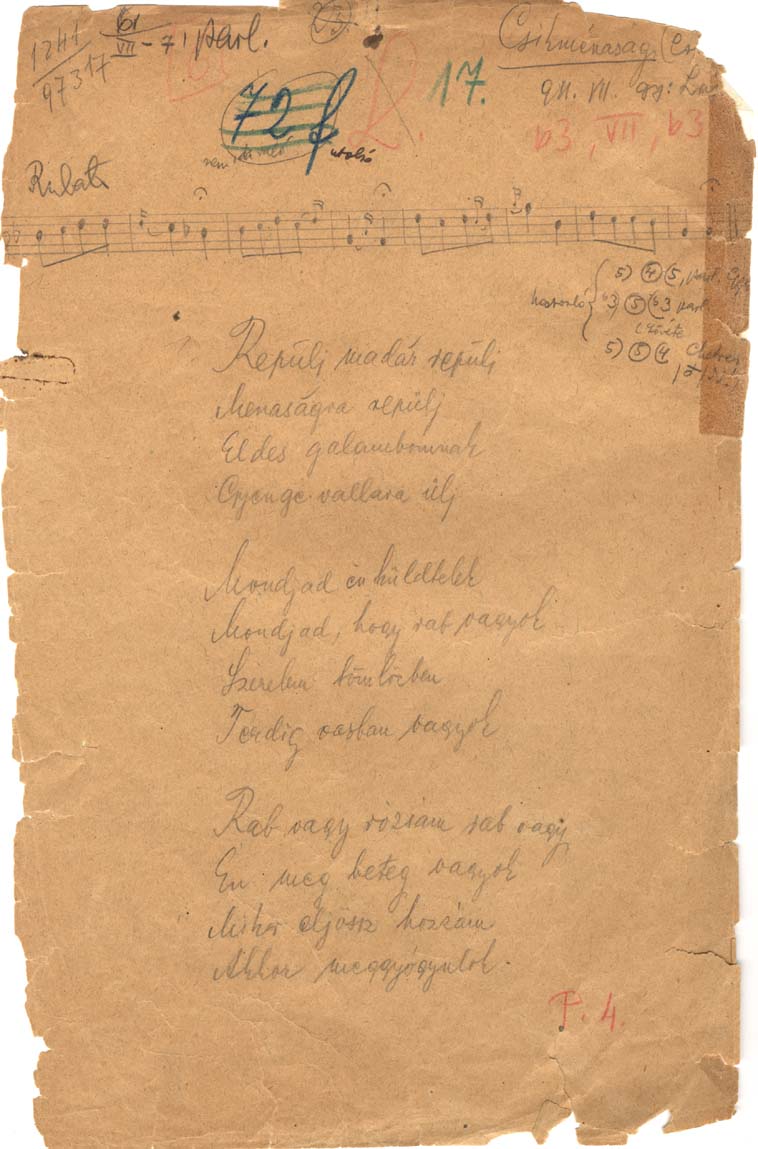 1241
97317
61
VII - 7 1 parl.
23.
Csikménaság
911. VII. gy: La
72 f
R. 17.
b3, VII, b3
utolsó
Rubato
5) 4 (5, parl.
hasonló b3) 5 (b3 parl
5) 5 4
Repülj madár repülj
Menaságra repülj
Eldes galambomnak
Gyenge vallara ülj
Mondjad én küldtelek
Mondjad, hogy rab vagyok
Szerelem tömlöcben
Terdig vasban vagyok
Rab vagy rózsám rab vagy
En meg beteg vagyok
Mikor eljössz hozzám
Akkor meggyógyulok.
P. 4.